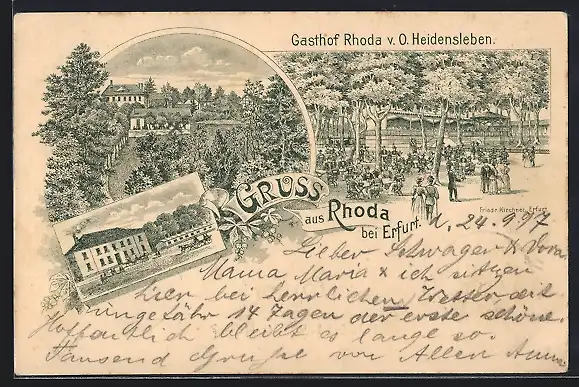 Gasthof Rhoda v. O. Heidensleben.
GRUSS
aus Rhoda
bei Erfurt.
Friedr. Kirchner, Erfurt
d. 24.9.97
Lieber Schwager &
Mama Maria & ich sitzen
hier bei herrlichen Wetter seit
ungefähr 14 Tagen der erste schöne.
Hoffentlich bleibt es lange so.
Tausend Grüße von Allen